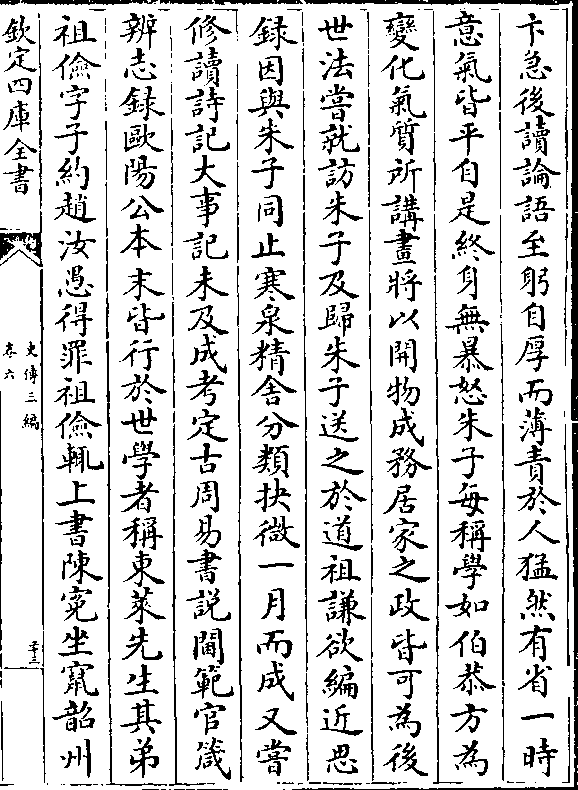 卞急後讀論語至躬自厚而薄責於人猛然有省一時
意氣皆平自是終身無暴怒朱子每稱學如伯恭方為
變化氣質所講畫將以開物成務居家之政皆可為後
世法嘗就訪朱子及歸朱子送之於道祖謙欲編近思
録因與朱子同止寒泉精舎分類抉微一月而成又嘗
修讀詩記大事記未及成考定古周易書説閫範官箴
辨志録歐陽公本末皆行於世學者稱東萊先生其弟
祖儉字子約趙汝愚得罪祖儉輒上書陳寃坐竄韶州
欽定四庫全書
史傳三編
卷六
五十三